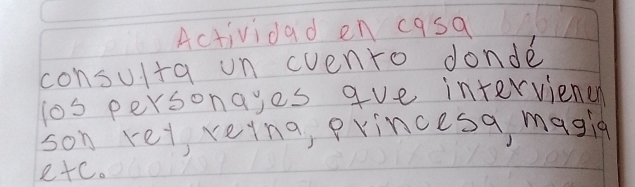 Actividad en casa
consulta un cuento dondé
los personayes que intervienen
son rey, reyna, princesa, magia
etc.